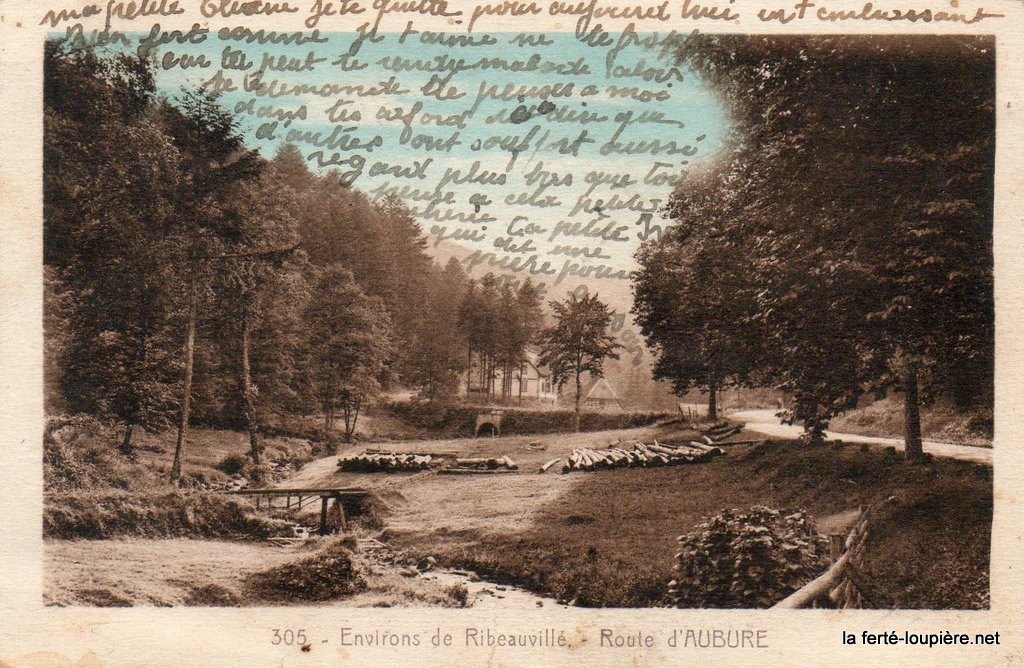 ma petite je te quitte pour aujourd'hui en t'embrassant
Bien fort comme je t'aime ne te
car te peut te rendre malade alors
je demande de penser a moi
dans tes de dire que
d'autres ont souffert aussi
regard plus bas que toi
pense a cela petite
cherie ta petite
qui dit une
prière pour
305. - Environs de Ribeauvillé. - Route d'AUBURE
la ferté-loupière.net